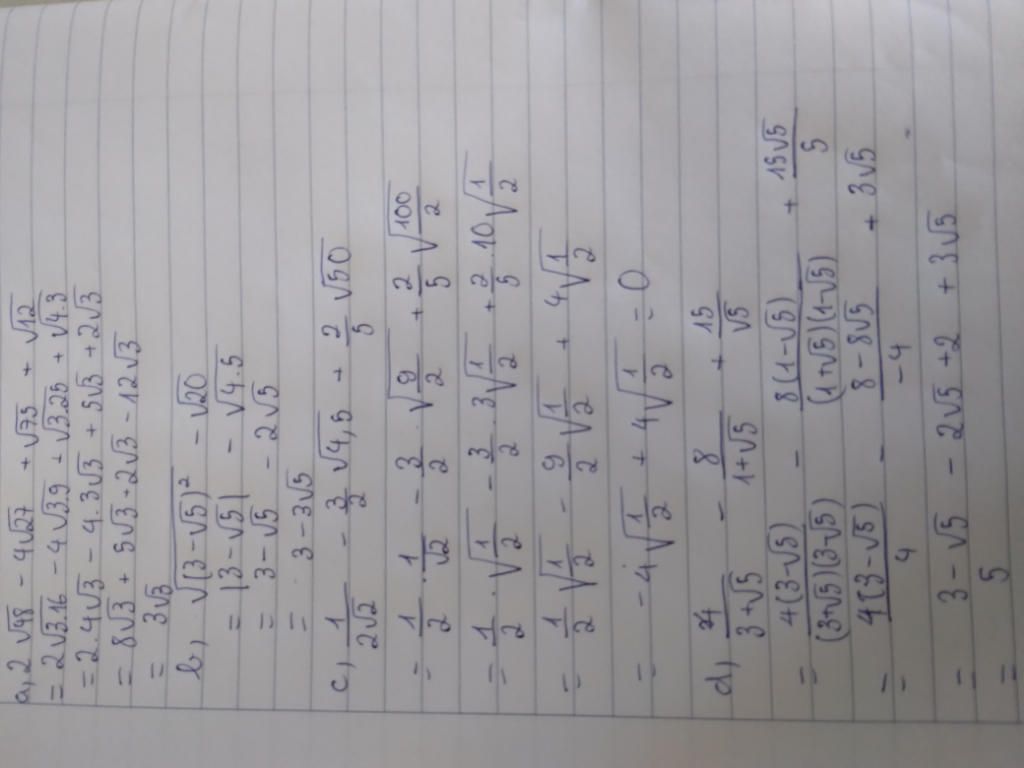 a, 2√48 - 4√27 + √75 + √12
= 2√3.16 - 4√3.9 + √3.25 + √4.3
= 2.4√3 - 4.3√3 + 5√3 + 2√3
= 8√3 + 5√3 + 2√3 - 12√3
= 3√3
b, √(3-√5)² - √20
= |3-√5| - √4.5
= 3-√5 - 2√5
= 3-3√5
c, 1/2√2 - 3/2 √4,5 + 2/5 √50
= 1/2 . 1/√2 - 3/2 . √9/2 + 2/5 √100/2
= 1/2 . √1/2 - 3/2 . 3√1/2 + 2/5 . 10√1/2
= 1/2 √1/2 - 9/2 √1/2 + 4√1/2
= -4√1/2 + 4√1/2 = 0
d) 4/3+√5 - 8/1+√5 + 15/√5
= 4(3-√5)/(3+√5)(3-√5) - 8(1-√5)/(1+√5)(1-√5) + 15√5/5
= 4(3-√5)/4 - 8-8√5/-4 + 3√5
= 3-√5 - 2√5 + 2 + 3√5
= 5